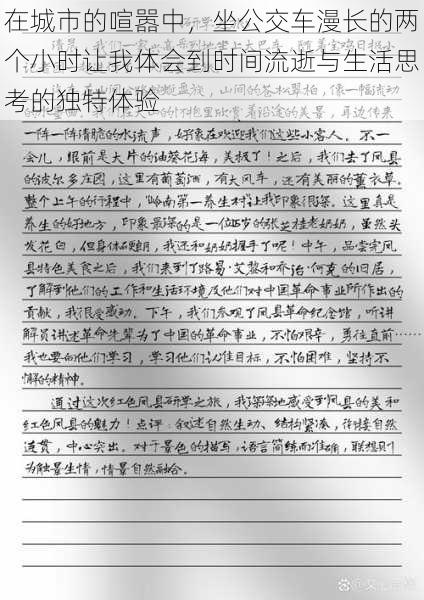 在城市的喧嚣中，坐公交车漫长的两
个小时让我体会到时间流逝与生活思
考的独特体验
一阵一阵清脆的水流声，好像在欢迎我们这些小客人。不一
会儿，眼前是大片的油葵花海，美极了！之后，我们去了凤县
的波尔多庄园，这里有葡萄酒，有大风车，还有美丽的薰衣草。
整个上午的行程中，岭南第一养生村让我印象很深。这里真是
养生的好地方，印象最深的是一位115岁的张芝桂老奶奶，虽然头
发花白，但身体硬朗，我还和奶奶握手了呢！中午，品尝完凤
县特色美食之后，我们来到了路易·艾黎和乔治·何克的旧居，
了解到他们的工作和生活环境及他们对中国革命事业所作出的
贡献，我很受感动。下午，我们参观了凤县革命纪念馆，听讲
解员讲述革命先辈为了中国的革命事业，不怕艰辛，勇往直前……
我也要向他们学习，学习他们认准目标，不怕困难，坚持不
懈的精神。
通过这次红色凤县研学之旅，我深深地感受到凤县的美和
红色凤县的魅力！点评：叙述自然生动、结构紧凑，衔接自然
连贯，中心突出。对于景色的描写，语言简练而准确，联想则
为触景生情，情景自然融合。